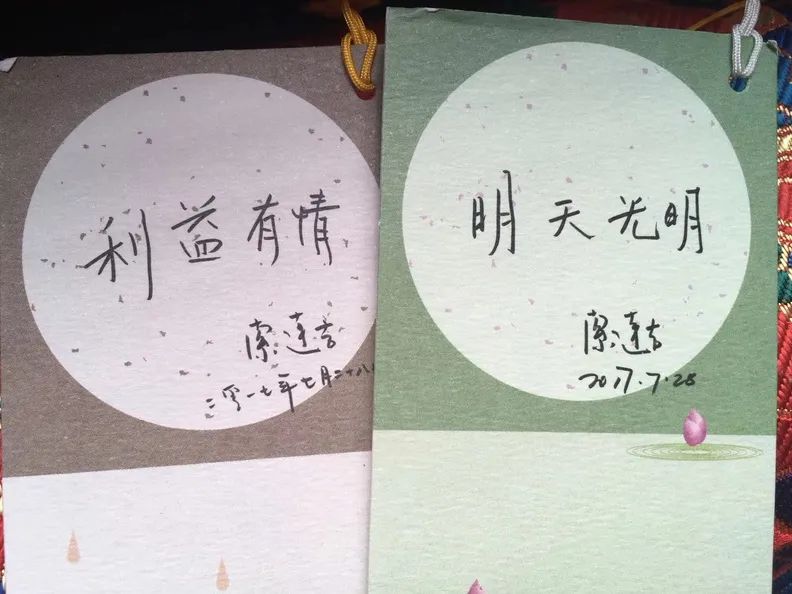 利益有情
索达吉
二零一七年七月二十八
明天光明
索达吉
2017.7.28